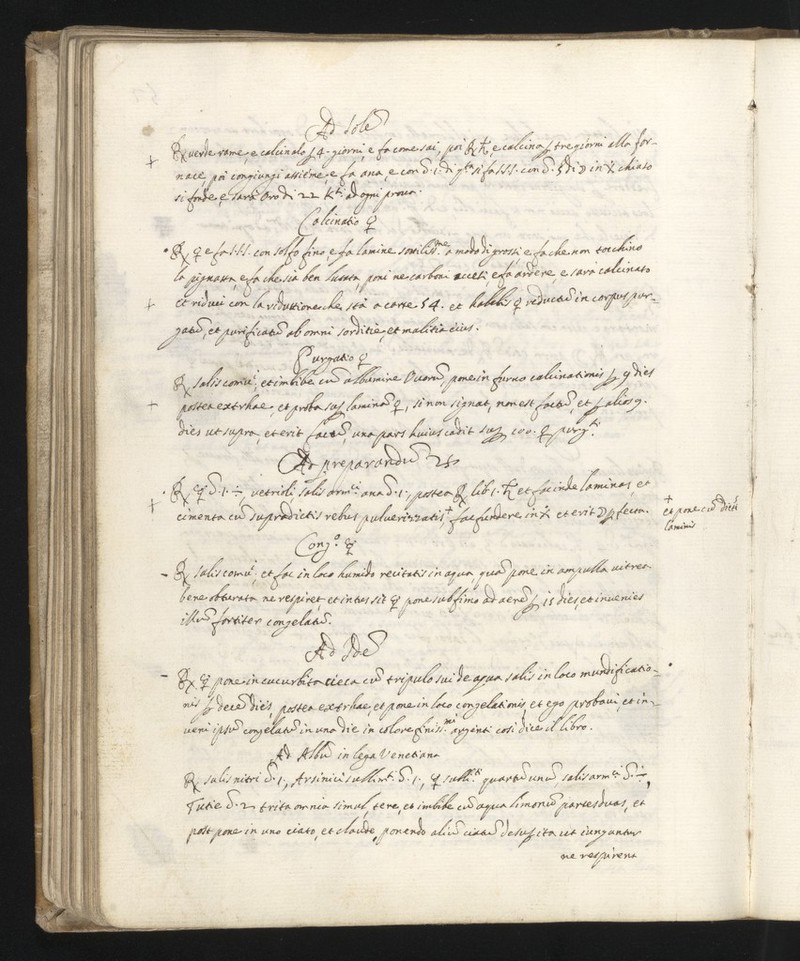 Ad Solē
℞ verde rame, e calcinalo ꝑ 4. giorni, e fa come sai, poi ℞ ♄, e calcina ꝑ tre giorni alla for-
nace, poi congiungi assieme, e fa ana, e con si fa S.S.S. con di ☽ in chiato
si fonde, e sarà Oro di 22 Kti ad ogni prova.
Calcinatio ♀
℞ ♀ e fa S.S.S. con solfo fino e fa lamine sottiliss.me a modo di grossi e fa che non tocchino
la pignatta, e fa che sia ben lutata, poni ne carboni accesi, e fa ardere, e sara calcinato
et riduci con la reduttione che sta a carte 54. et habebis ♀ reductū in corpus pur-
gatū, et purificatū ab omni sorditie, et malitia eius.
Purgatio ♀
℞ salis comui, et imbibe cū albumine Ovorū, pone in furno calcinationis ꝑ 9 dies
postea extrhae, et proba sup laminā ♀, si non signat, non est factū, et ꝑ alios 9.
dies ut supra, et erit factū, una pars huius cadit sup 100. ♀ purg.ti
Ad preparandū ♃
℞ ☿ vetrioli salis armci ana postea ℞ lib 1. ♄ et fac inde laminas, et
cimenta cū supradictis rebus pulverizzatis + fac fundere in et erit ☽ ꝑfecta.
+ et pone cū dictis
laminis
Cong.o ☿
℞ salis comui, et fac in loco humido recitatis in aqua, quā pone in ampulla vitrea
bene obturata ne respiret, et intus sit ☿ pone sub fimo ad aerē ꝑ 15 dies, et invenies
illū fortiter congelatū.
Ad Idē
℞ ☿ pone in cucurbita cieca cū tripulo sui de aqua salis in loco mundificatio-
nis ꝑ decē dies, postea extrhae, et pone in loco congelationis, et ego probavi, et in-
veni ipsū congelatū in uno die in colore finiss.mi argenti cosi dice il libro.
Ad Albū in lega Venetiana
℞ salis nitri 1, Arsinici sullim.ti 1, ☿ sull.ti quartū unū salis arm.ci
Tutie 2 trita omnia simul, tere, et imbibe cū aqua limonū partes duas, et
post pone in uno ciato, et claude, ponendo aliū ciatū desuꝑ ita ut iungantur
ne respirent